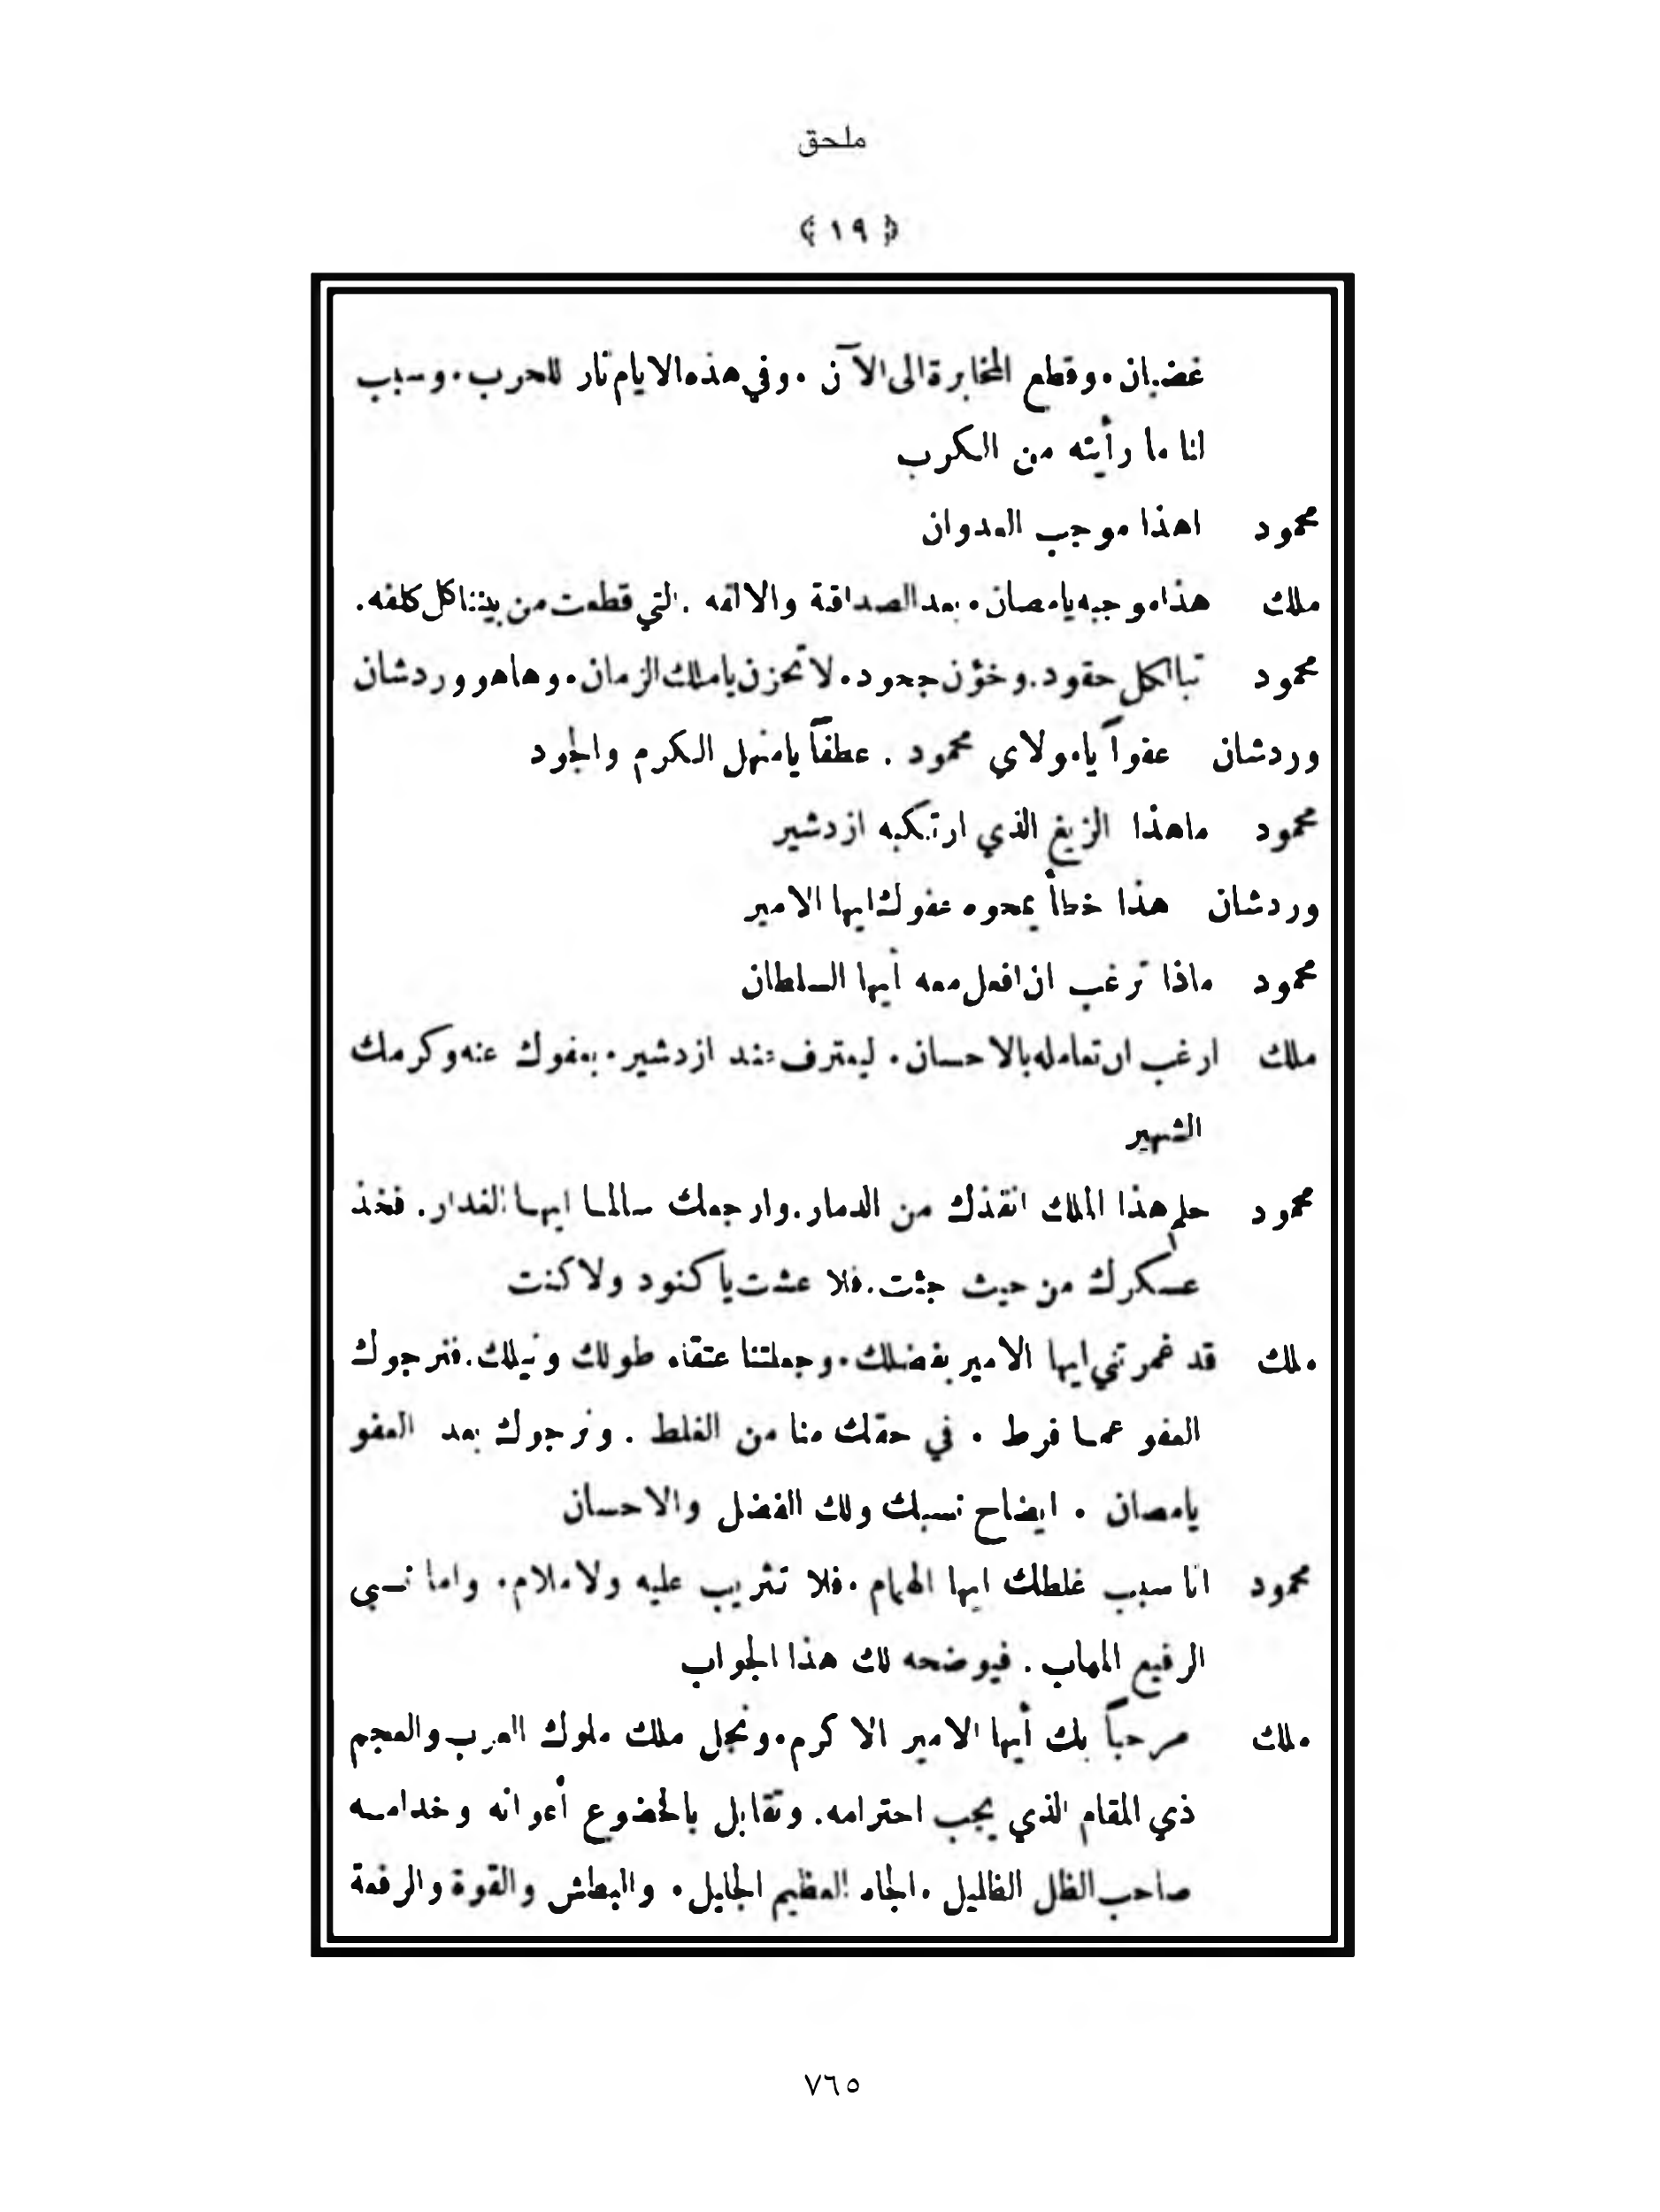 ملحق
﴿ ١٩ ﴾
غضبان . وقطع المخابرة الى الآن . وفي هذه الايام ثار للحرب . وسبب
لنا ما رأيته من الكرب
محمود اهذا موجب العدوان
ملك هذا موجبه يا مصان . بعد الصداقة والالفه . التي قطعت من بيننا كل كلفه .
محمود تبا لكل حقود . وخؤن جحود . لا تحزن يا ملك الزمان . وها هو وردشان
وردشان عفواً يا مولاي محمود . عطفاً يا منهل الكرم والجود
محمود ما هذا الزيغ الذي ارتكبه ازدشير
وردشان هذا خطأ يمحوه عفوك ايها الامير
محمود ماذا ترغب ان افعل معه أيها السلطان
ملك ارغب ان تعامله بالاحسان . ليعترف عند ازدشير . بعفوك عنه وكرمك
الشهير
محمود حلم هذا الملك انقذك من الدمار . وارجعك سالما ايها الغدار . فخذ
عسكرك من حيث جئت . فلا عشت يا كنود ولا كنت
ملك قد غمرتني ايها الامير بفضلك . وجعلتنا عتقاء طولك ونيلك . فنرجوك
العفو عما فرط . في حقك منا من الغلط . ونرجوك بعد العفو
يا مصان . ايضاح نسبك ولك الفضل والاحسان
محمود انا سبب غلطك ايها الهمام . فلا تثريب عليه ولا ملام . واما نسبي
الرفيع المهاب . فيوضحه لك هذا الجواب
ملك مرحباً بك أيها الامير الاكرم . ونجل ملك ملوك العرب والعجم
ذي المقام الذي يجب احترامه . وتقابل بالخضوع أعوانه وخدامه
صاحب الظل الظليل . الجاه العظيم الجليل . والبطش والقوة والرفعة
٧٦٥